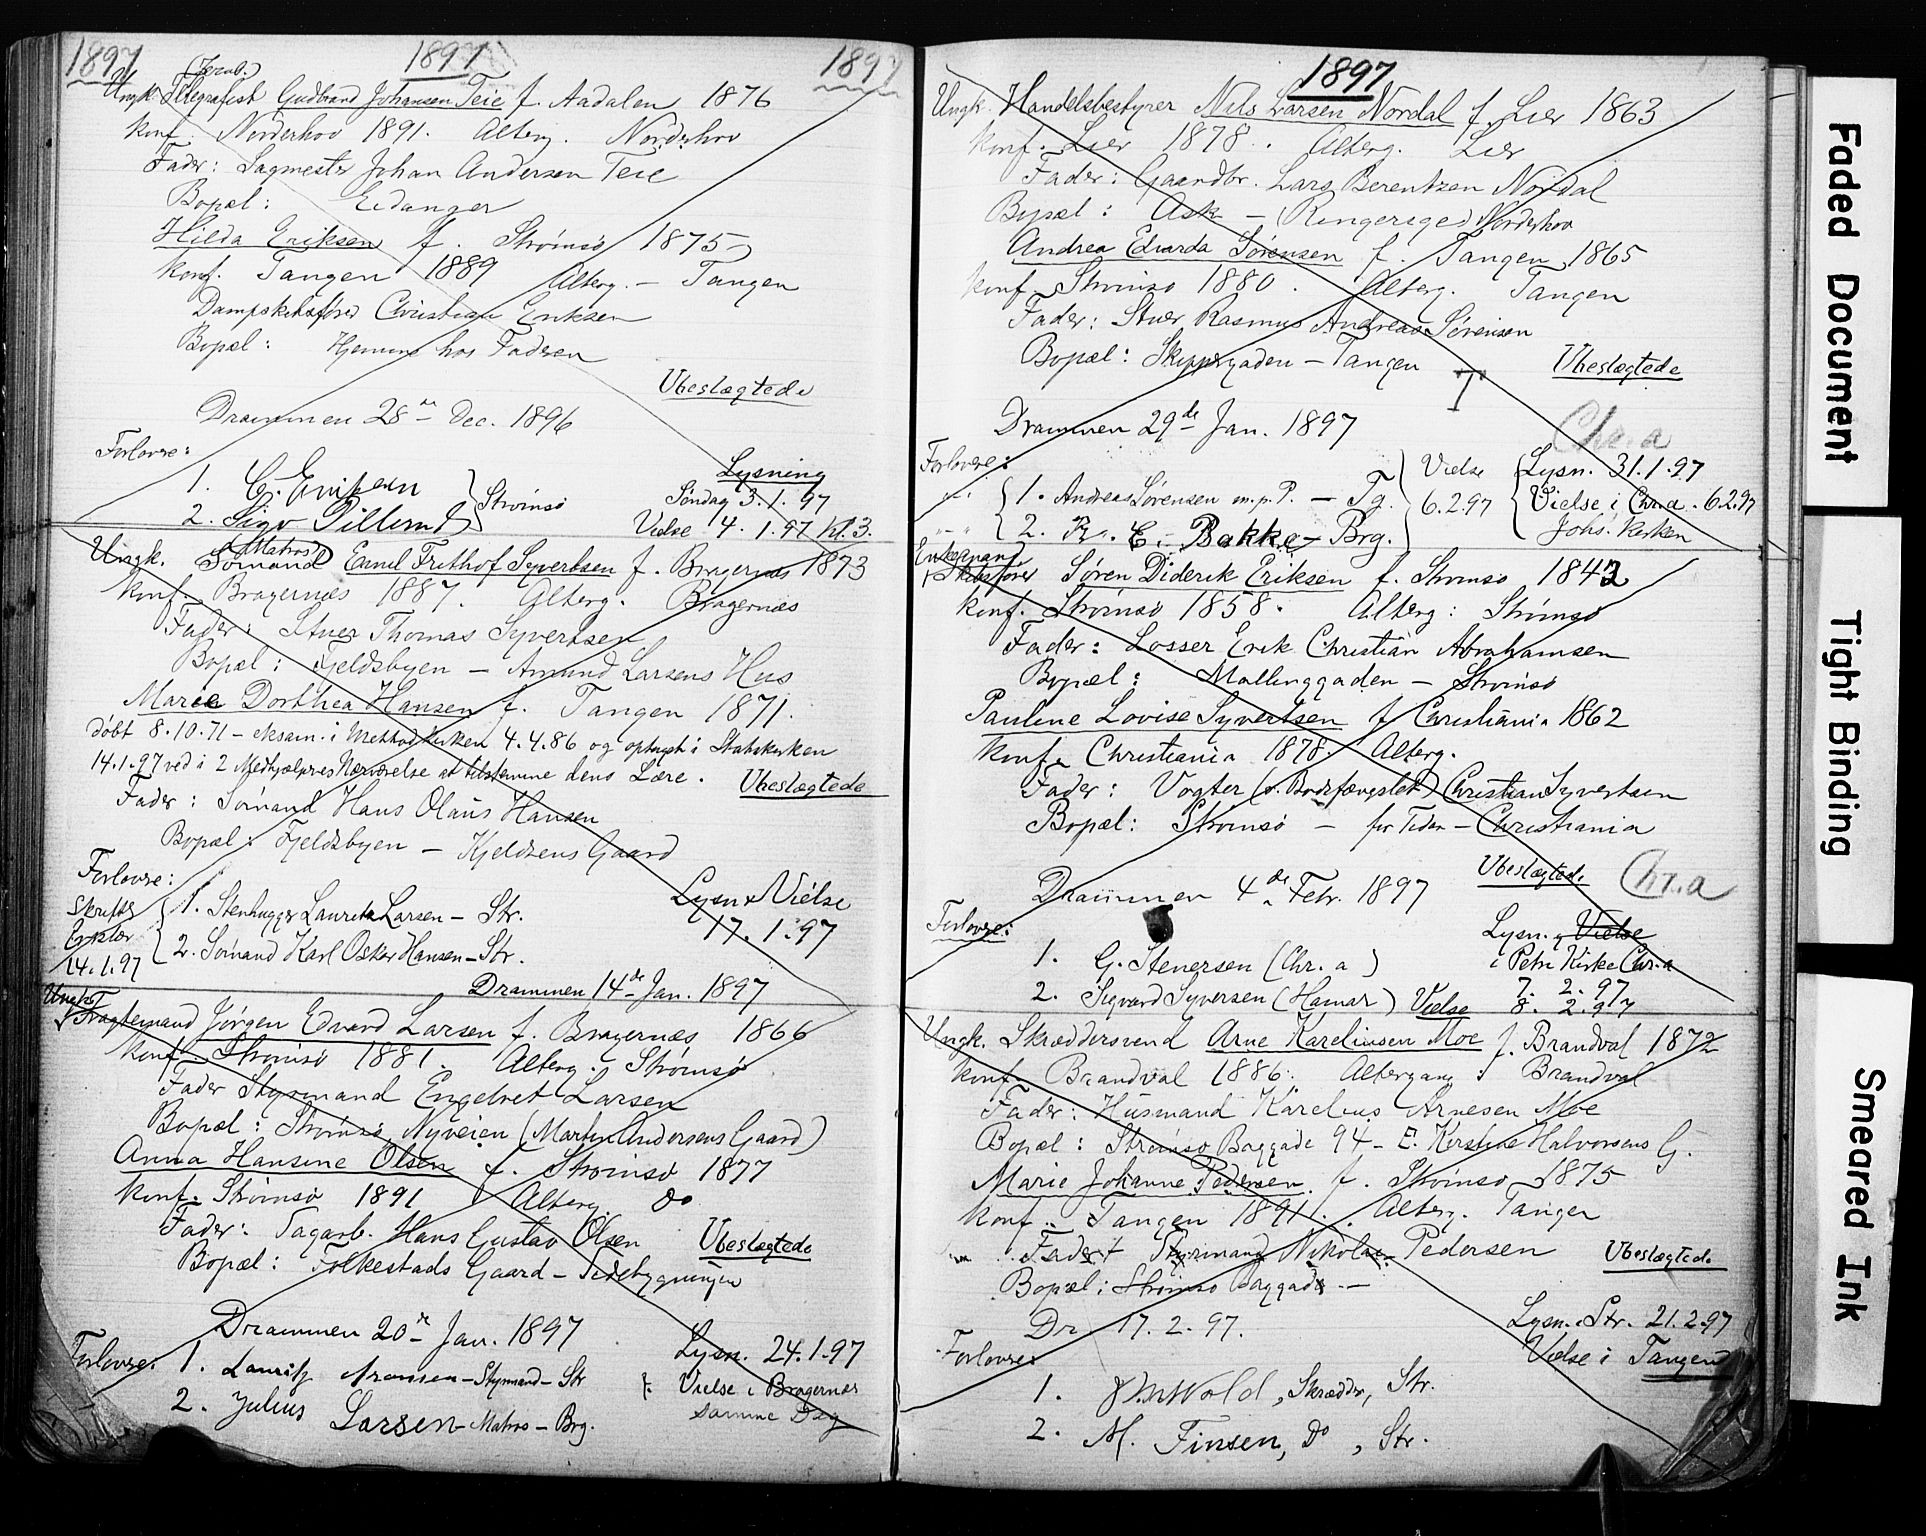 1897 1897 1897
(Jernb.)
Ungk. Telegrafist Gudbrand Johansen Teie f. Aadalen 1876
Konf. Norderhov 1891. Alterg. Norderhov
Fader: Sagmester Johan Andersen Teie
Bopæl: Eidanger
Hilda Eriksen f. Strømsø 1875
Konf. Tangen 1889 Alterg. – Tangen
Dampskibsfører Christian Eriksen
Bopæl: Hjemme hos Faderen
Ubeslægtede
Drammen 28de Dec. 1896
Forlovere:
1. C. Eriksen
2. Sigv
Strømsø
Lysning
Søndag 3.1.97
Vielse 4.1.97 Kl. 3.
Matros
Ungk. Sømand Emil Frithof Syvertsen f. Bragernæs 1873
Konf. Bragernæs 1887. Alterg. Bragernæs
Fader: Stuer Thomas Syvertsen
Bopæl: Fjeldsbyen – Amund Larsens Hus
Marie Dorthea Hansen f. Tangen 1871.
døbt 8.10.71 – eksam. i Methodkirken 4.4.86 og optaget i Statskirken
14.1.97 ved i 2 Medhjælpres Nærværelse at tilstemme dens Lære.
Ubeslægtede
Fader: Sømand Hans Olaus Hansen
Bopæl: Fjeldsbyen – Kjeldsens Gaard
Forlovere:
Skriftl.
14.1.97
1. Stenhugger Lauritz Larsen – Str.
2. Sømand Karl Oskar Hansen – Str.
Lysn & Vielse
17.1.97
Drammen 14de Jan. 1897
Ungk.
Fragtemand Jørgen Edvard Larsen f. Bragernæs 1866
Konf. Strømsø 1881. Alterg. Strømsø
Fader Styrmand Engebret Larsen
Bopæl: Strømsø, Nyveien (Martin Andersens Gaard)
Anna Hansine Olsen f. Strømsø 1877
Konf. Strømsø 1891 Alterg. Do
Fader: Sagarb. Hans Gustav Olsen
Ubeslægtede
Bopæl: Folkestads Gaard – Sidebygningen
Drammen 20de Jan. 1897
Forlovere:
1. Lauritz Aronsen – Styrmand – Str
2. Julius Larsen – Matros – Brg.
Lysn. 24.1.97
Vielse i Bragernæs
samme Dag
1897
Ungk. Handelsbestyrer Nils Larsen Nordal f. Lier 1863
Konf. Lier 1878. Alterg. Lier
Fader: Gaardbr. Lars Berentzen Nordal
Bopæl: Ask – (Ringerige) Norderhov
Andrea Edvarda Sørensen f. Tangen 1865
Konf. Strømsø 1880. Alterg. Tangen
Fader: Stuer Rasmus Andreas Sørensen
Bopæl: Skippergaden – Tangen
Ubeslægtede
Drammen 29de Jan. 1897
Chr.a
Forlovere:
1. Andreas Sørensen m.p.P. – Tg.
2. R. E. Bakke – Brg.
Vielse
6.2.97
Lysn. 31.1.97
Vielse i Chr.a. 6.2.97
Johs. Kirken
Enkemand
Skibsfører Søren Diderik Eriksen f. Strømsø 1843
Konf. Strømsø 1858. Alterg: Strømsø
Fader: Losser Erik Christian Abrahamsen
Bopæl: Mallinggaden – Strømsø
Pauline Lovise Syvertsen f. Christiania 1862
Konf. Christiania 1878. Alterg.
Fader: Vogter (v. Bodsfængslet) Christian Syvertsen
Bopæl: Strømsø – for Tiden – Christiania
Ubeslægtede
Chr.a
Drammen 4de Febr. 1897
Forlovere:
1. G. Stenersen (Chr.a)
2. Sigvard Syversen (Hamar)
Lysn. & Vielse
i Petri Kirke Chr.a
7.2.97
Vielse 8.2.97
Ungk. Skræddersvend Arne Karelinsen Moe f. Brandval 1872
Konf. Brandval 1886. Altergang i Brandval
Fader: Husmand Karelius Arnesen Moe
Bopæl: Strømsø Baggade 94 – E. Kirstine Halvorsens G.
Marie Johanne Pedersen f. Strømsø 1875
Konf. Tangen 1891. Alterg. Tangen
Fader † Styrmand Nikolai Pedersen
Ubeslægtede
Bopæl: Strømsø Baggade –
Dr 17.2.97.
Lysn. Str. 21.2.97
Vielse i Tangen
Forlovere:
1. Wold, Skrædder, Str.
2. M. Finsen, Do, Str.
Faded Document
Tight Binding
Smeared Ink